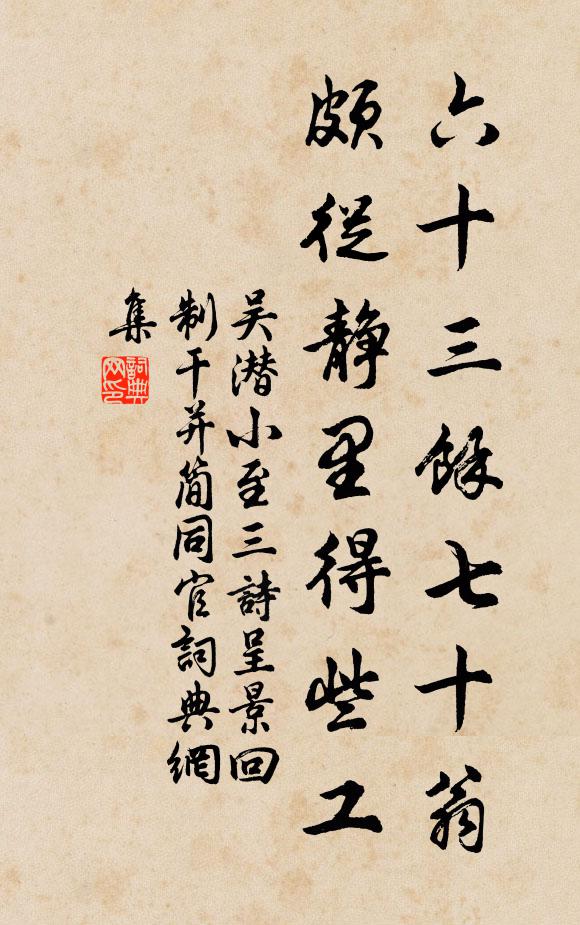 六十三餘七十翁
頗從静里得些工
吴潜小至三詩呈景回
制干并簡同官詞典網
集
詞典
网印